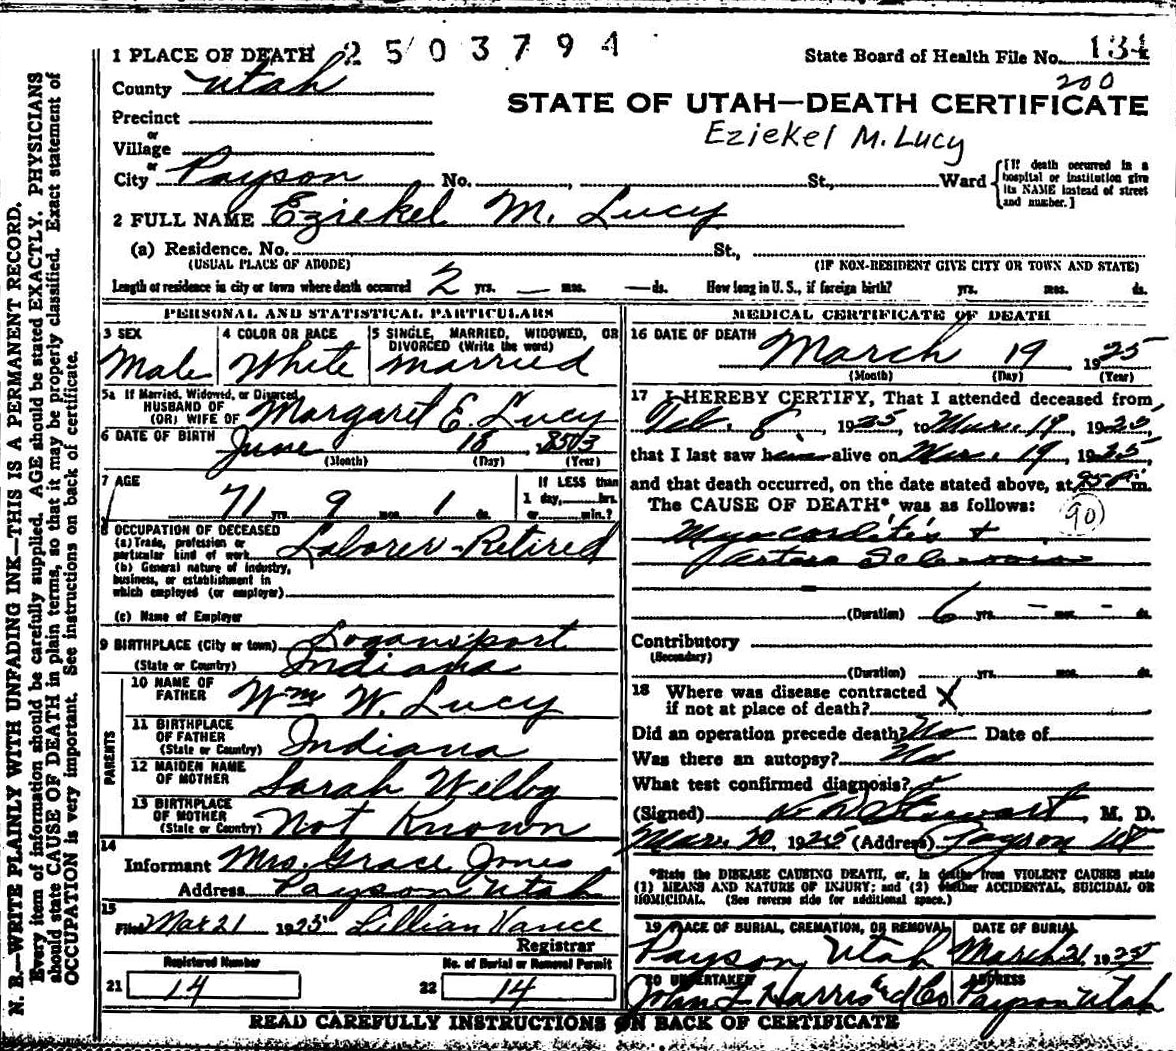 1 PLACE OF DEATH 2503794
State Board of Health File No. 134
200
County Utah
STATE OF UTAH—DEATH CERTIFICATE
Eziekel M. Lucy
Precinct
or
Village
or
City Payson No. , St., Ward
[If death occurred in a
hospital or institution give
its NAME instead of street
and number.]
2 FULL NAME Eziekel M. Lucy
(a) Residence. No. St.,
(USUAL PLACE OF ABODE) (IF NON-RESIDENT GIVE CITY OR TOWN AND STATE)
Length of residence in city or town where death occurred 2 yrs. — mos. — ds. How long in U. S., if foreign birth? yrs. mos. ds.
PERSONAL AND STATISTICAL PARTICULARS
3 SEX
Male
4 COLOR OR RACE
White
5 SINGLE, MARRIED, WIDOWED, OR
DIVORCED (Write the word)
Married
5a If Married, Widowed, or Divorced
HUSBAND OF
(OR) WIFE OF Margaret E. Lucy
6 DATE OF BIRTH June 18
(Month) (Day) (Year)
7 AGE
71 yrs. 9 mos. 1 ds.
If LESS than
1 day, hrs.
or min.?
8 OCCUPATION OF DECEASED
(a) Trade, profession or
particular kind of work Laborer - Retired
(b) General nature of industry,
business, or establishment in
which employed (or employer)
(c) Name of Employer
9 BIRTHPLACE (City or town) Logansport
(State or Country) Indiana
PARENTS
10 NAME OF
FATHER Wm W. Lucy
11 BIRTHPLACE
OF FATHER
(State or Country) Indiana
12 MAIDEN NAME
OF MOTHER Sarah Welby
13 BIRTHPLACE
OF MOTHER
(State or Country) Not Known
14
Informant Mrs. Grace Jones
Address Payson, Utah
15
Filed Mar 21 1925 Lillian Vance
Registrar
Registered Number
21 14
No. of Burial or Removal Permit
22 14
MEDICAL CERTIFICATE OF DEATH
16 DATE OF DEATH March 19 1925
(Month) (Day) (Year)
17 I HEREBY CERTIFY, That I attended deceased from
Feb. 8, 1925, to Mar. 19, 1925,
that I last saw h alive on Mar. 19, 1925,
and that death occurred, on the date stated above, at m.
The CAUSE OF DEATH* was as follows:
90
Myocarditis &
Arterio Sclerosis
(Duration) 6 yrs. — mos. — ds.
Contributory
(Secondary)
(Duration) yrs. mos. ds.
18 Where was disease contracted
if not at place of death? X
Did an operation precede death? No Date of
Was there an autopsy? No
What test confirmed diagnosis?
(Signed) Stewart, M. D.
Mar. 20, 1925 (Address) Payson Ut
*State the DISEASE CAUSING DEATH, or, in deaths from VIOLENT CAUSES state
(1) MEANS AND NATURE OF INJURY; and (2) whether ACCIDENTAL, SUICIDAL OR
HOMICIDAL. (See reverse side for additional space.)
19 PLACE OF BURIAL, CREMATION, OR REMOVAL
Payson, Utah
DATE OF BURIAL
March 21, 1925
20 UNDERTAKER
John L Harris Co
ADDRESS
Payson Utah
READ CAREFULLY INSTRUCTIONS ON BACK OF CERTIFICATE
N. B.—WRITE PLAINLY WITH UNFADING INK—THIS IS A PERMANENT RECORD.
Every item of information should be carefully supplied. AGE should be stated EXACTLY. PHYSICIANS
should state CAUSE OF DEATH in plain terms, so that it may be properly classified. Exact statement of
OCCUPATION is very important. See instructions on back of certificate.